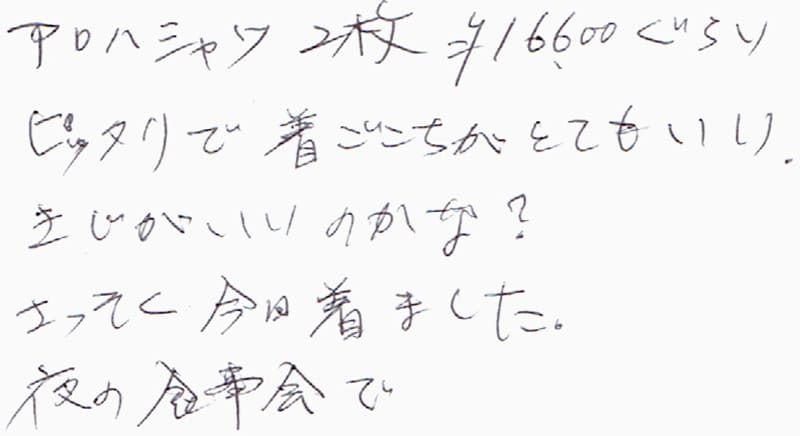 アロハシャツ 2枚 ¥16,600ぐらい
ピッタリで着ごこちがとてもいい.
きじがいいのかな?
さっそく今日着ました。
夜の食事会で